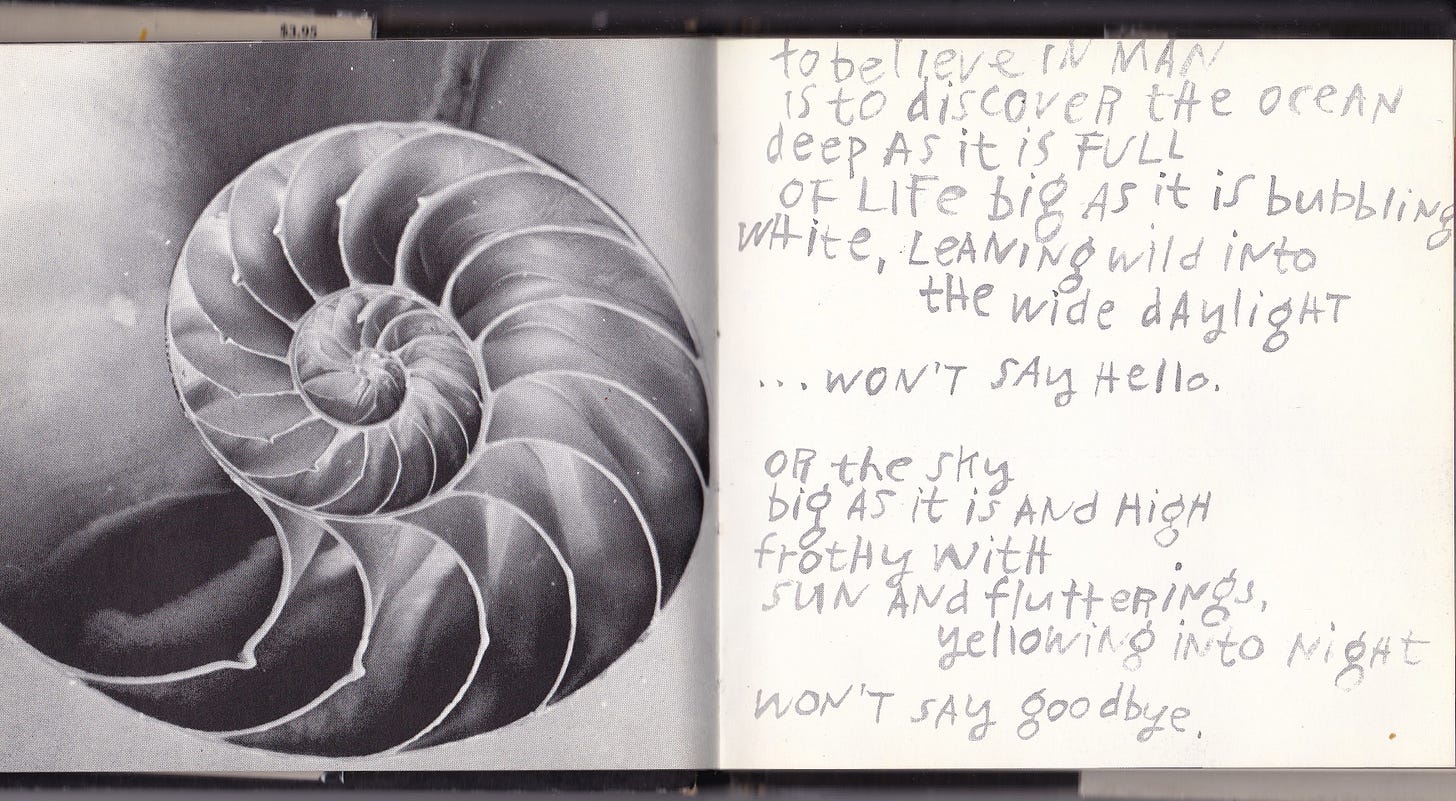 $3.95
to believe IN MAN
is to discoveR tHe oceAN
deep AS it is FULL
OF LIFe big AS it is bubbling
wHite, LeANiNg wild iNto
tHe wide dAyligHT
...WON'T SAy Hello.
OR the sKy
big AS it is ANd HigH
frotHy witH
SUN ANd flutteRiNgs,
yellowiNg iNto NigHt
WON'T SAy goodbye.